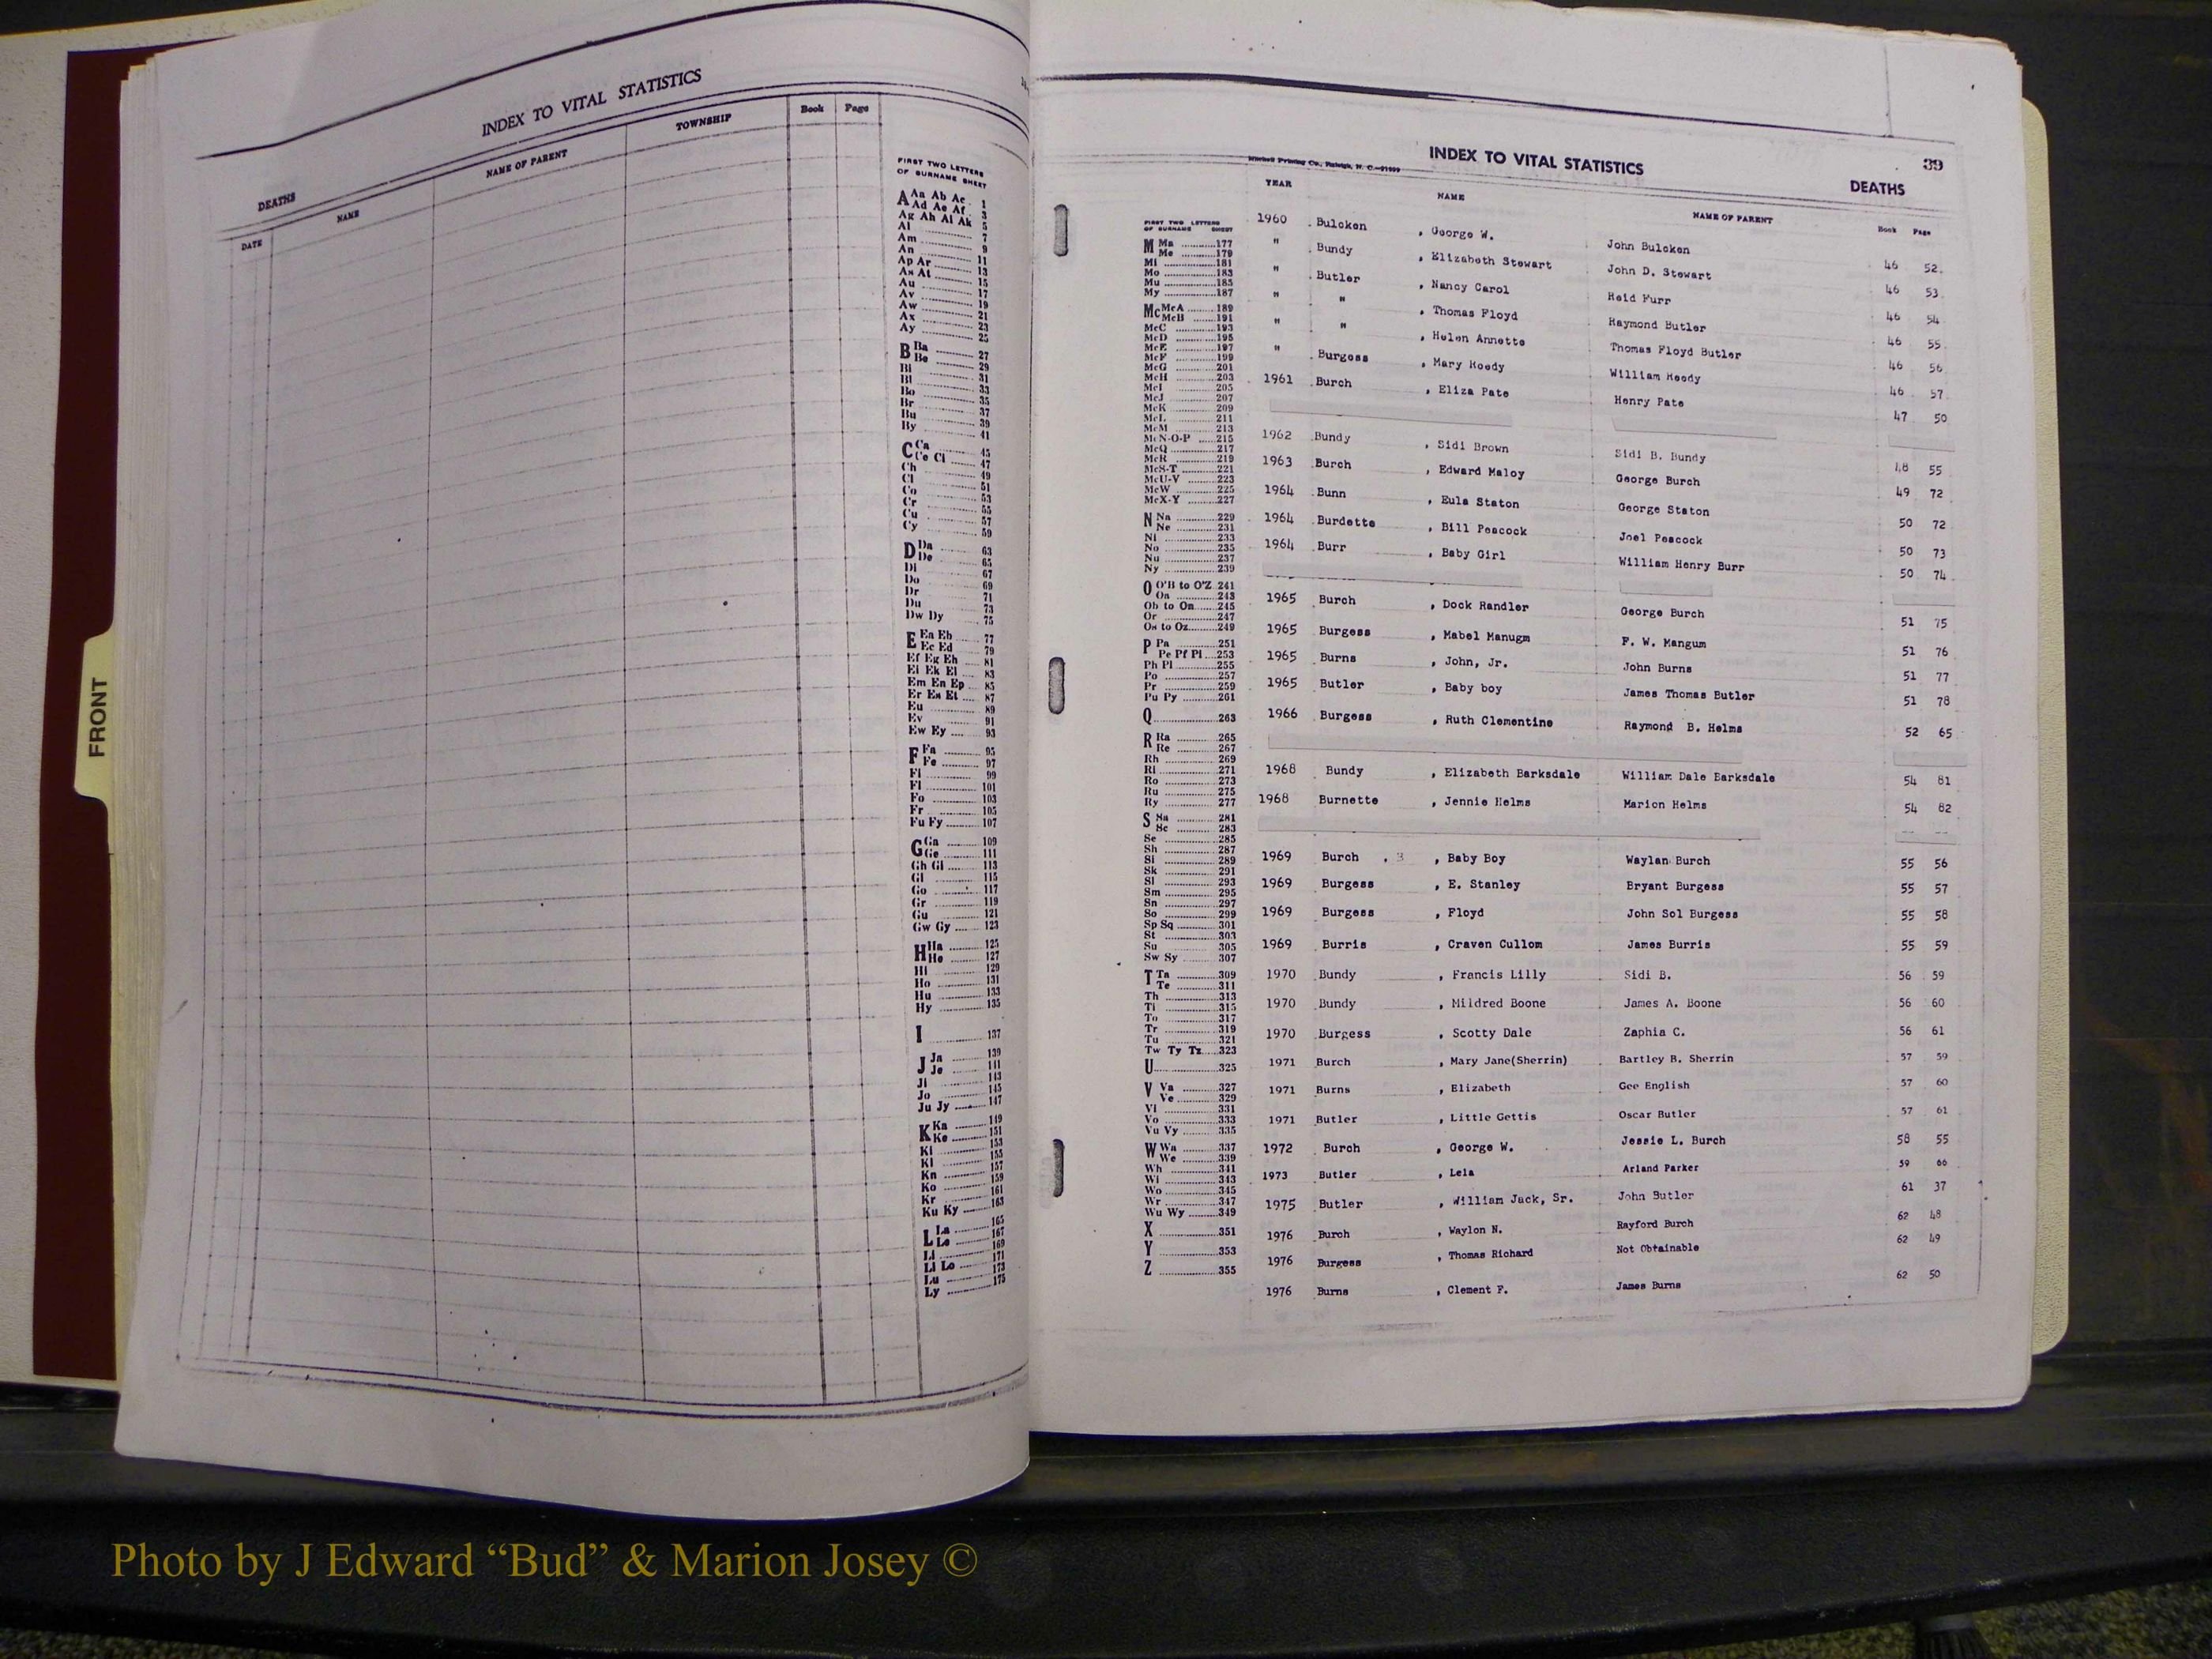 INDEX TO VITAL STATISTICS
DEATHS
DATE NAME NAME OF PARENT TOWNSHIP Book Page
FIRST TWO LETTERS
OF SURNAME SHEET
A Aa Ab Ac 1
Ad Ae Af 3
Ag Ah Ai Ak 5
Al 7
Am 9
An 11
Ap Ar 13
As At 15
Au 17
Av 19
Aw 21
Ax 23
Ay 25
B Ba 27
Be 29
Bi 31
Bl 33
Bo 35
Br 37
Bu 39
By 41
C Ca 45
Ce Ci 47
Ch 49
Cl 51
Co 53
Cr 55
Cu 57
Cy 59
D Da 63
De 65
Di 67
Do 69
Dr 71
Du 73
Dw Dy 75
E Ea Eb 77
Ec Ed 79
Ef Eg Eh 81
Ei Ek El 83
Em En Ep 85
Er Es Et 87
Eu 89
Ev 91
Ew Ey 93
F Fa 95
Fe 97
Fi 99
Fl 101
Fo 103
Fr 105
Fu Fy 107
G Ga 109
Ge 111
Gh Gi 113
Gl 115
Go 117
Gr 119
Gu 121
Gw Gy 123
H Ha 125
He 127
Hi 129
Ho 131
Hu 133
Hy 135
I 137
J Ja 139
Je 141
Ji 143
Jo 145
Ju Jy 147
K Ka 149
Ke 151
Ki 153
Kl 155
Kn 157
Ko 159
Kr 161
Ku Ky 163
L La 165
Le 167
Li 169
Ll Lo 171
Lu 173
Ly 175
FRONT
Mitchell Printing Co., Raleigh, N. C.
INDEX TO VITAL STATISTICS 39
DEATHS
YEAR NAME NAME OF PARENT Book Page
FIRST TWO LETTERS
OF SURNAME SHEET
M Ma 177
Me 179
Mi 181
Mo 183
Mu 185
My 187
Mc McA 189
McB 191
McC 193
McD 195
McE 197
McF 199
McG 201
McH 203
McI 205
McJ 207
McK 209
McL 211
McM 213
McN-O-P 215
McQ 217
McR 219
McS-T 221
McU-V 223
McW 225
McX-Y 227
N Na 229
Ne 231
Ni 233
No 235
Nu 237
Ny 239
O O'B to O'Z 241
Oa 243
Ob to On 245
Or 247
Os to Oz 249
P Pa 251
Pe Pf Pi 253
Ph Pl 255
Po 257
Pr 259
Pu Py 261
Q 263
R Ra 265
Re 267
Rh 269
Ri 271
Ro 273
Ru 275
Ry 277
S Sa 281
Sc 283
Se 285
Sh 287
Si 289
Sk 291
Sl 293
Sm 295
Sn 297
So 299
Sp Sq 301
St 303
Su 305
Sw Sy 307
T Ta 309
Te 311
Th 313
Ti 315
To 317
Tr 319
Tu 321
Tw Ty Tz 323
U 325
V Va 327
Ve 329
Vi 331
Vo 333
Vu Vy 335
W Wa 337
We 339
Wh 341
Wi 343
Wo 345
Wr 347
Wu Wy 349
X 351
Y 353
Z 355
1960 Bulcken , George W. John Bulcken 46 52
" Bundy , Elizabeth Stewart John D. Stewart 46 53
" Butler , Nancy Carol Reid Furr 46 54
" " , Thomas Floyd Raymond Butler 46 55
" " , Helen Annette Thomas Floyd Butler 46 56
" Burgess , Mary Reedy William Reedy 46 57
1961 Burch , Eliza Pate Henry Pate 47 50
1962 Bundy , Sidi Brown Sidi B. Bundy 48 55
1963 Burch , Edward Maloy George Burch 49 72
1964 Bunn , Eula Staton George Staton 50 72
1964 Burdette , Bill Peacock Joel Peacock 50 73
1964 Burr , Baby Girl William Henry Burr 50 74
1965 Burch , Dock Randler George Burch 51 75
1965 Burgess , Mabel Manugm F. W. Mangum 51 76
1965 Burns , John, Jr. John Burns 51 77
1965 Butler , Baby boy James Thomas Butler 51 78
1966 Burgess , Ruth Clementine Raymond B. Helms 52 65
1968 Bundy , Elizabeth Barksdale William Dale Barksdale 54 81
1968 Burnette , Jennie Helms Marion Helms 54 82
1969 Burch , Baby Boy Waylan Burch 55 56
1969 Burgess , E. Stanley Bryant Burgess 55 57
1969 Burgess , Floyd John Sol Burgess 55 58
1969 Burris , Craven Cullom James Burris 55 59
1970 Bundy , Francis Lilly Sidi B. 56 59
1970 Bundy , Mildred Boone James A. Boone 56 60
1970 Burgess , Scotty Dale Zaphia C. 56 61
1971 Burch , Mary Jane(Sherrin) Bartley B. Sherrin 57 59
1971 Burns , Elizabeth Gee English 57 60
1971 Butler , Little Gettis Oscar Butler 57 61
1972 Burch , George W. Jessie L. Burch 58 55
1973 Butler , Lela Arland Parker 59 66
1975 Butler , William Jack, Sr. John Butler 61 37
1976 Burch , Waylon N. Rayford Burch 62 48
1976 Burgess , Thomas Richard Not Obtainable 62 49
1976 Burns , Clement F. James Burns 62 50
Photo by J Edward “Bud” & Marion Josey ©